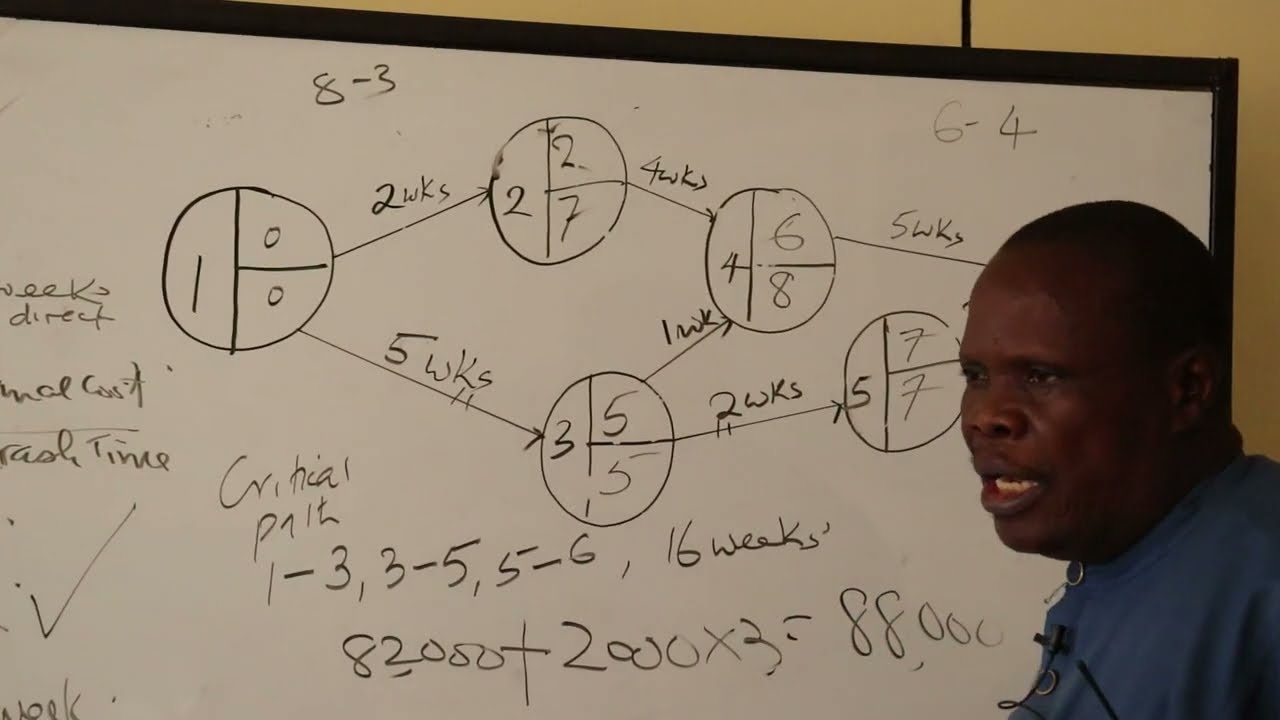 8-3
6-4
2wks
2
2
7
4wks
1
0
0
4
6
8
5wks
weeks
direct
5wks
1wk
3
5
5
2wks
5
7
7
Cost
Time
Critical
path
1-3, 3-5, 5-6, 16 weeks
82,000+2000×3=88,000
week